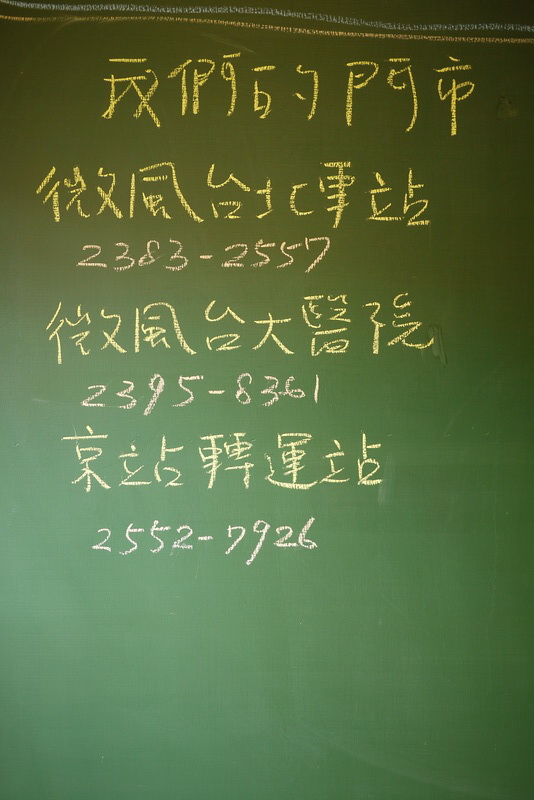 我們的門市
微風台北車站
2383-2557
微風台大醫院
2395-8361
京站轉運站
2552-7926